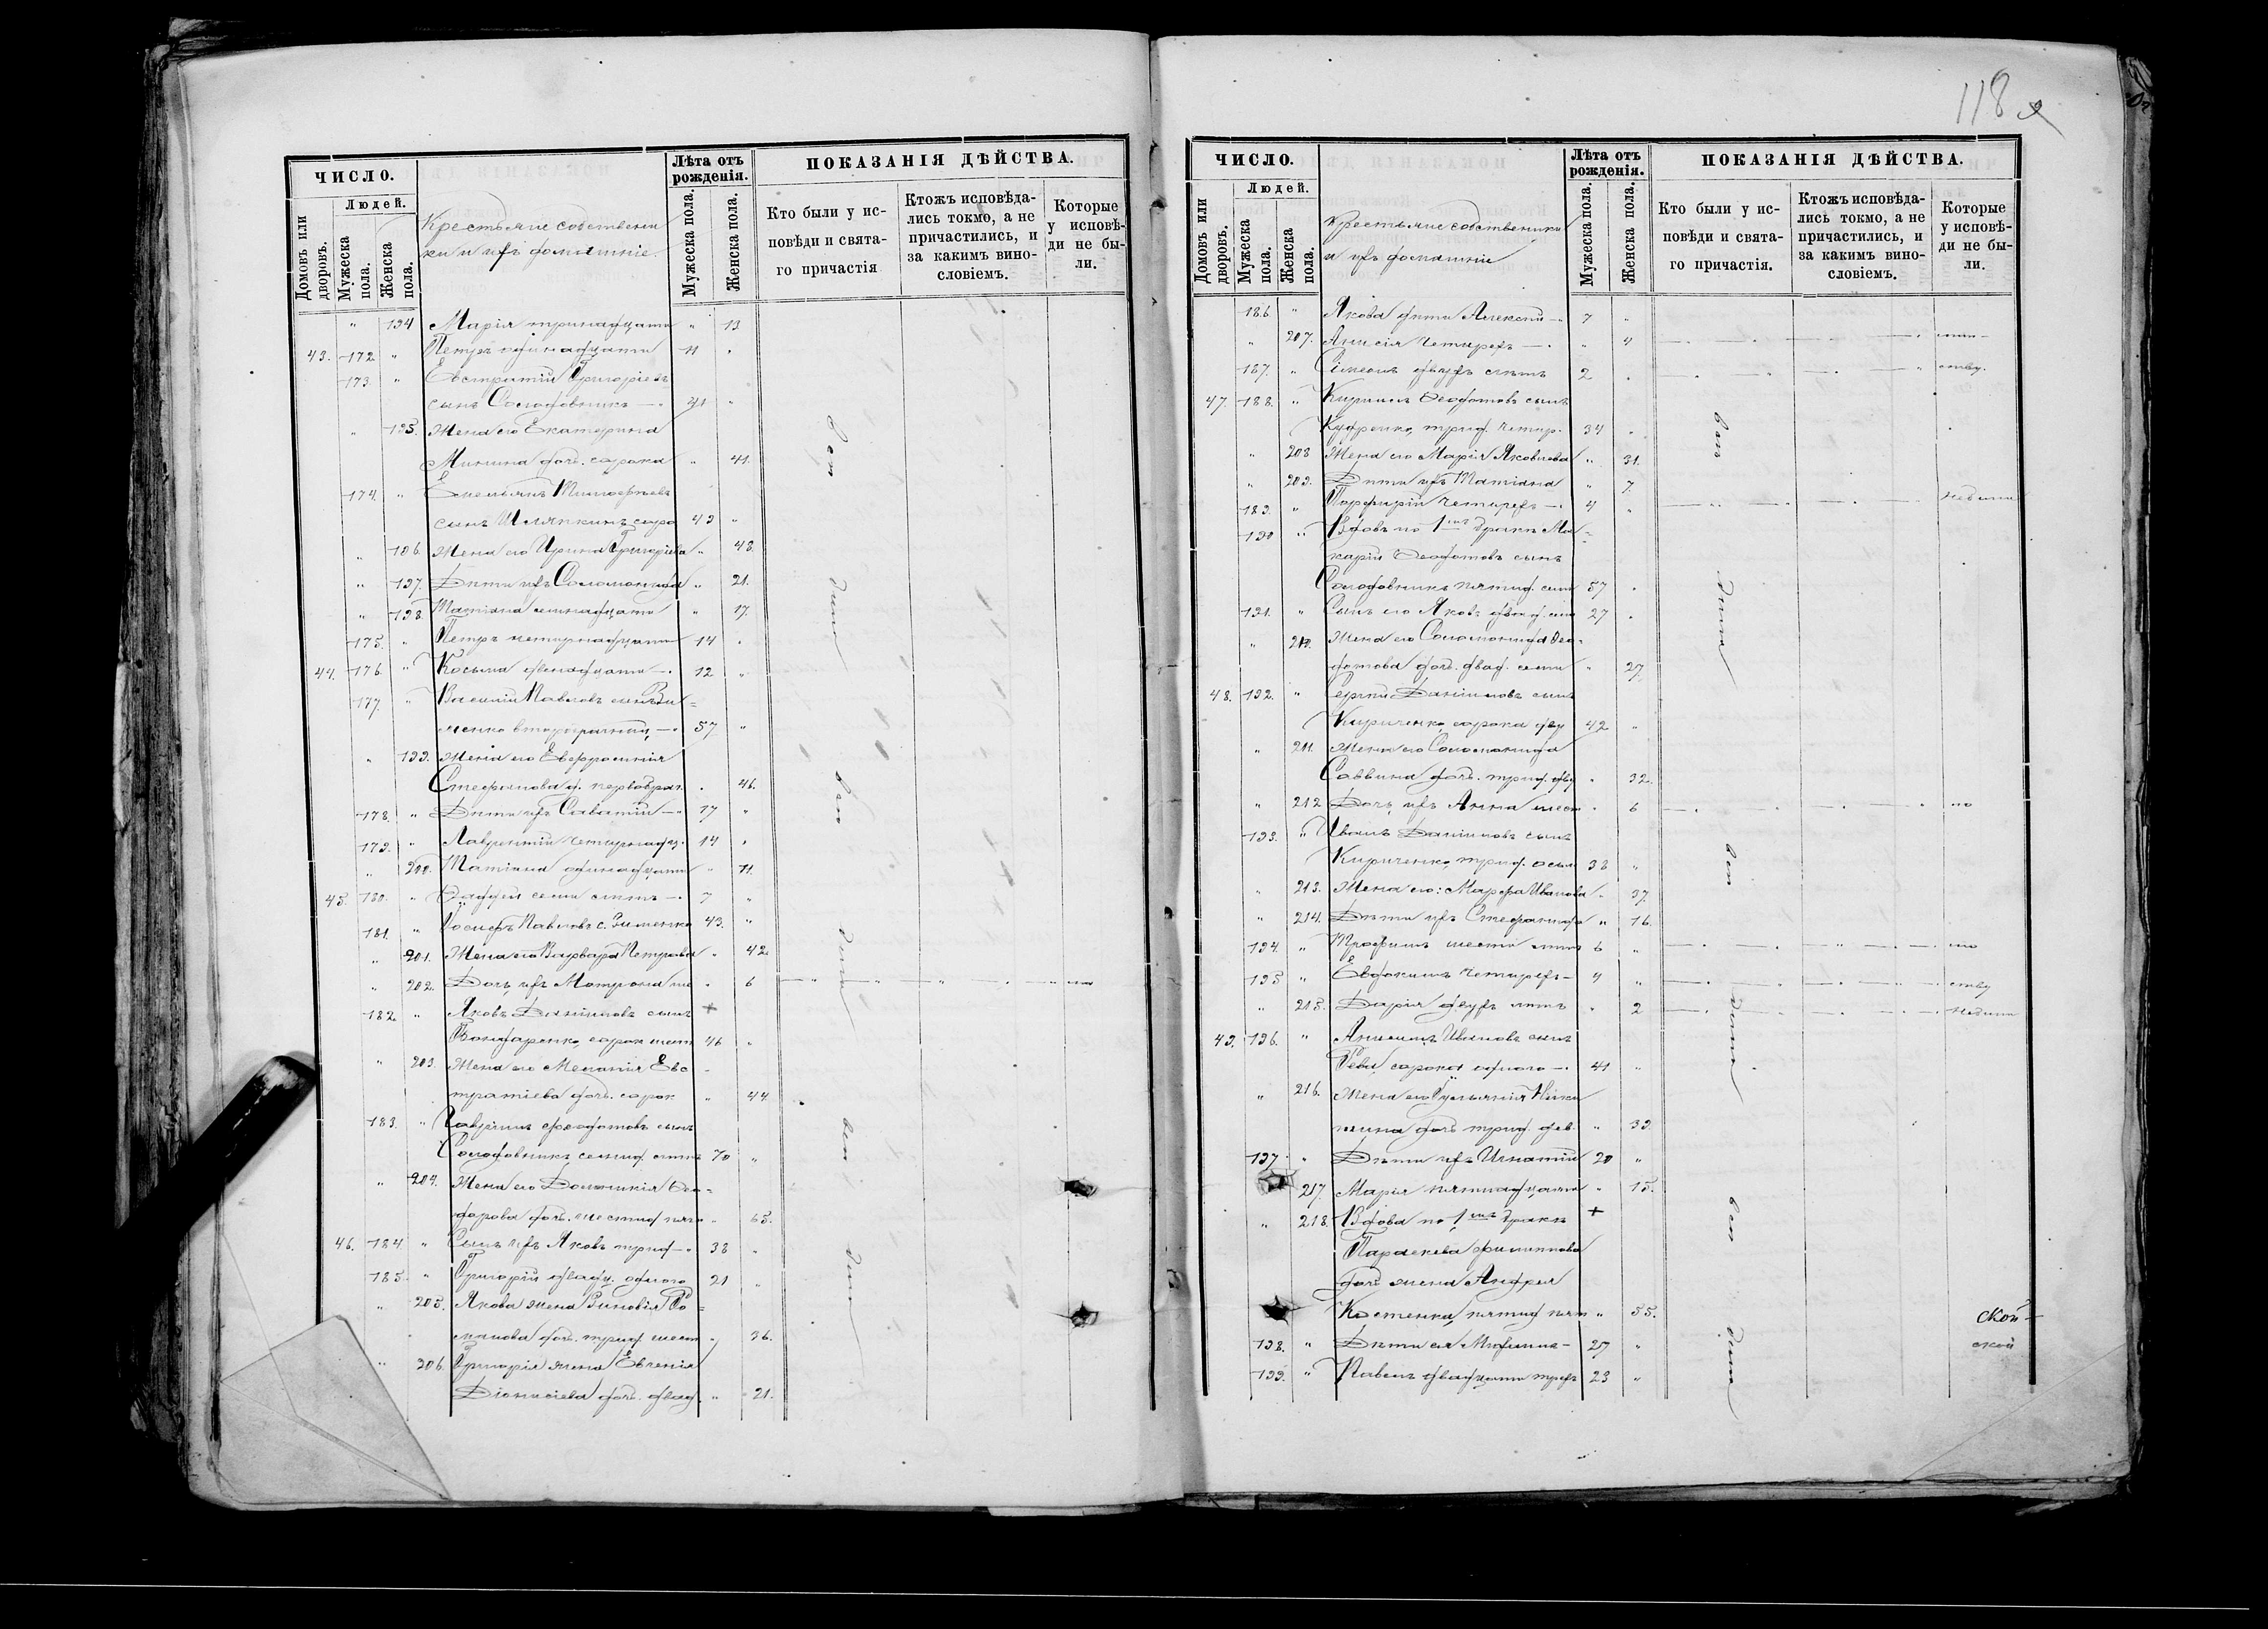 118
ЧИСЛО.
Людей.
Домовъ или дворовъ.
Мужеска пола.
Женска пола.
Крестьяне собственни
ки и ихъ домашніе.
Лѣта отъ рожденія.
Мужеска пола.
Женска пола.
ПОКАЗАНІЯ ДѢЙСТВА.
Кто были у исповѣди и святаго причастія
Ктожъ исповѣдались токмо, а не причастились, и за какимъ винословіемъ.
Которые у исповѣди не были.
" 194 Марія тринадцати " 13
43. 172 " Петръ одинадцати 11 "
173. " Евстратій Григоріевъ
сынъ Солодовникъ — 41 "
" 195. Жена его Екатерина
Минина доч. сорока " 41.
174. " Емельянъ Тимофѣевъ
сынъ Шляпкинъ соро 49 "
" 196. Жена его Ирина Григоріева " 48.
" 197. Дѣти ихъ Соломонида " 21.
" 198. Татіана семнадцати " 17.
175. " Петръ четырнадцати 14 "
44. 176. " Косьма двенадцати — 12 "
177. " Василій Павловъ сынъ Зи=
менко второбрачный, — 57 "
" 199. Жена его Евфросинія
Стефанова д. первобрач. " 46.
178. " Дѣти ихъ Саватій — 17 "
179. " Лаврентій четырнадц. 14 "
" 200. Татіана одинадцати " 11.
45. 180. " Фаддей семи лѣтъ — 7 "
181. " Іосифъ Павловъ с. Зименко 43. "
" 201. Жена его Варвара Петрова " 42.
" 202. Дочь ихъ Матрона ше " 6
182. " Яковъ Даниловъ сынъ +
Бондаренко, сорок шест 46 "
" 203. Жена его Меланія Евс
тратіева доч. сорок " 44
183. " Гавріилъ Феодотовъ сынъ
Солодовникъ семид. лѣтъ 70 "
" 204. Жена его Домникія Фео=
дорова доч. шестид. пяти " 65.
46. 184. " Сынъ ихъ Яковъ трид — 38 "
185. " Григорій двадц. одного 21 "
" 205. Якова жена Зиновія Ро=
манова доч. трид. шест " 36.
" 206. Григорія жена Евгенія
Діонисіева доч. двад. " 21.
всѣ
были
всѣ
были
всѣ
были
ЧИСЛО.
Людей.
Домовъ или дворовъ.
Мужеска пола.
Женска пола.
Крестьяне собственники
и ихъ домашніе
Лѣта отъ рожденія.
Мужеска пола.
Женска пола.
ПОКАЗАНІЯ ДѢЙСТВА.
Кто были у исповѣди и святаго причастія.
Ктожъ исповѣдались токмо, а не причастились, и за какимъ винословіемъ.
Которые у исповѣди не были.
186. " Якова дѣти Алексій — 7 "
" 207. Анисія четырехъ — " 4
187. " Симеонъ двухъ лѣтъ 2 "
47. 188. " Кириллъ Феодотовъ сынъ
Кудренко, трид. четыр. 34 "
" 208 Жена его Марія Яковлева " 31.
" 209. Дѣти ихъ Татіана " 7.
189. " Порфирій четырехъ — 4 "
190 " Вдовъ по 1мъ бракѣ Ма=
карій Феодотовъ сынъ
Солодовникъ пятид. семи 57 "
191. " Сынъ его Яковъ двад. семи 27 "
" 210. Жена его Соломонида Фео=
дотова доч. двад. семи " 27.
48. 192. " Сергій Даниловъ сынъ
Кириченко, сорока дву 42 "
" 211. Жена его Соломонида
Саввина доч. трид. дву " 32.
" 212 Дочь ихъ Анна шест " 6
193. " Иванъ Даниловъ сынъ
Кириченко, трид. осьм 38 "
" 213. Жена его: Марфа Иванова " 37.
" 214. Дѣти ихъ Стефанида " 16.
194. " Трофимъ шести лѣтъ 6 "
195 " Евдокимъ четырехъ — 4 "
" 215. Дарія двухъ лѣтъ " 2
49. 196. " Іванновъ сынъ
Рева, сорока одного — 41 "
" 216. Жена его Іуліанія Ники
тина доч. трид. дев. " 39.
197 " Дѣти ихъ Игнатій 20 "
" 217. Марія пятнадцати " 15.
" 218. Вдова по 1мъ бракѣ +
Параскева Филиппова
доч. жена Андрея
Костенка, пятид. пят " 55.
198. " Дѣти ея 27 "
199. " Павелъ двадцати трехъ 23 "
всѣ
были
всѣ
были
всѣ
были
ской
ской